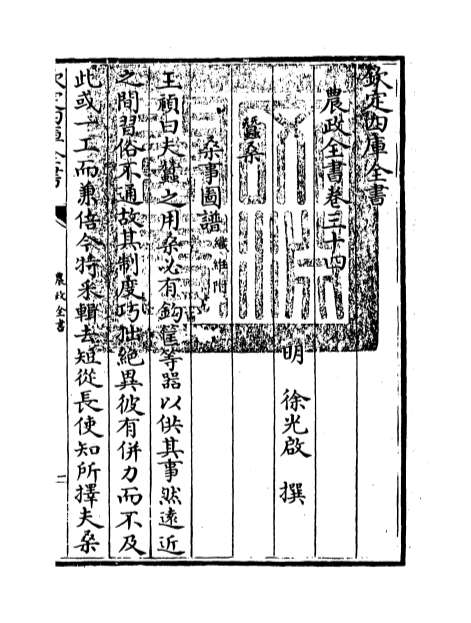 欽定四庫全書
農政全書卷三十四
明 徐光啟 撰
蠶桑
桑事圖譜 織維附
王禎曰夫蠶之用桑必有鉤筐等器以供其事然遠近
之間習俗不通故其制度巧拙絶異彼有併力而不及
此或一工而兼倍今將采輯去短從長使知所擇夫桑
欽定四庫全書
農政全書